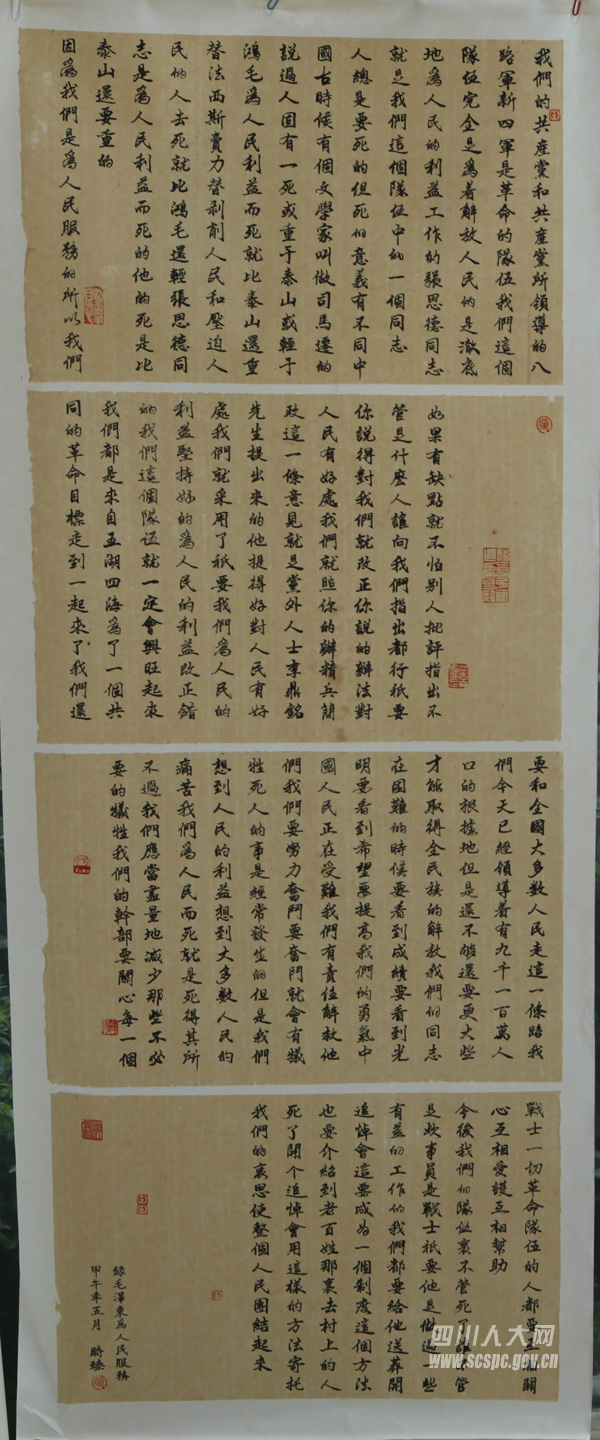 我們的共產黨和共產黨所領導的八
路軍新四軍是革命的隊伍我們這個
隊伍完全是為着解放人民的是澈底
地為人民的利益工作的張思德同志
就是我們這個隊伍中的一個同志
人總是要死的但死的意義有不同中
國古時候有個文學家叫做司馬遷的
說過人固有一死或重于泰山或輕于
鴻毛為人民利益而死就比泰山還重
替法西斯賣力替剥削人民和壓迫人
民的人去死就比鴻毛還輕張思德同
志是為人民利益而死的他的死是比
泰山還要重的
因為我們是為人民服務的所以我們
如果有缺點就不怕別人批評指出不
管是什麼人誰向我們指出都行祇要
你說得對我們就改正你說的辦法對
人民有好處我們就照你的辦精兵簡
政這一條意見就是黨外人士李鼎銘
先生提出來的他提得好對人民有好
處我們就采用了祇要我們為人民的
利益堅持好的為人民的利益改正錯
的我們這個隊伍就一定會興旺起來
我們都是來自五湖四海為了一個共
同的革命目標走到一起來了我們還
要和全國大多數人民走這一條路我
們今天已經領導着有九千一百萬人
口的根據地但是還不夠還要更大些
才能取得全民族的解放我們的同志
在困難的時候要看到成績要看到光
明要看到希望要提高我們的勇氣中
國人民正在受難我們有責任解救他
們我們要努力奮鬥要奮鬥就會有犧
牲死人的事是經常發生的但是我們
想到人民的利益想到大多數人民的
痛苦我們為人民而死就是死得其所
不過我們應當盡量地减少那些不必
要的犧牲我們的幹部要關心每一個
戰士一切革命隊伍的人都要互相關
心互相愛護互相幫助
今後我們的隊伍裏不管死了誰不管
是炊事員是戰士祇要他是做過一些
有益的工作的我們都要給他送葬開
追悼會這要成為一個制度這個方法
也要介紹到老百姓那裏去村上的人
死了開个追悼會用這樣的方法寄托
我們的哀思使整個人民團結起來
錄毛澤東為人民服務
甲午年五月 時臻
四川人大网
www.scspc.gov.cn